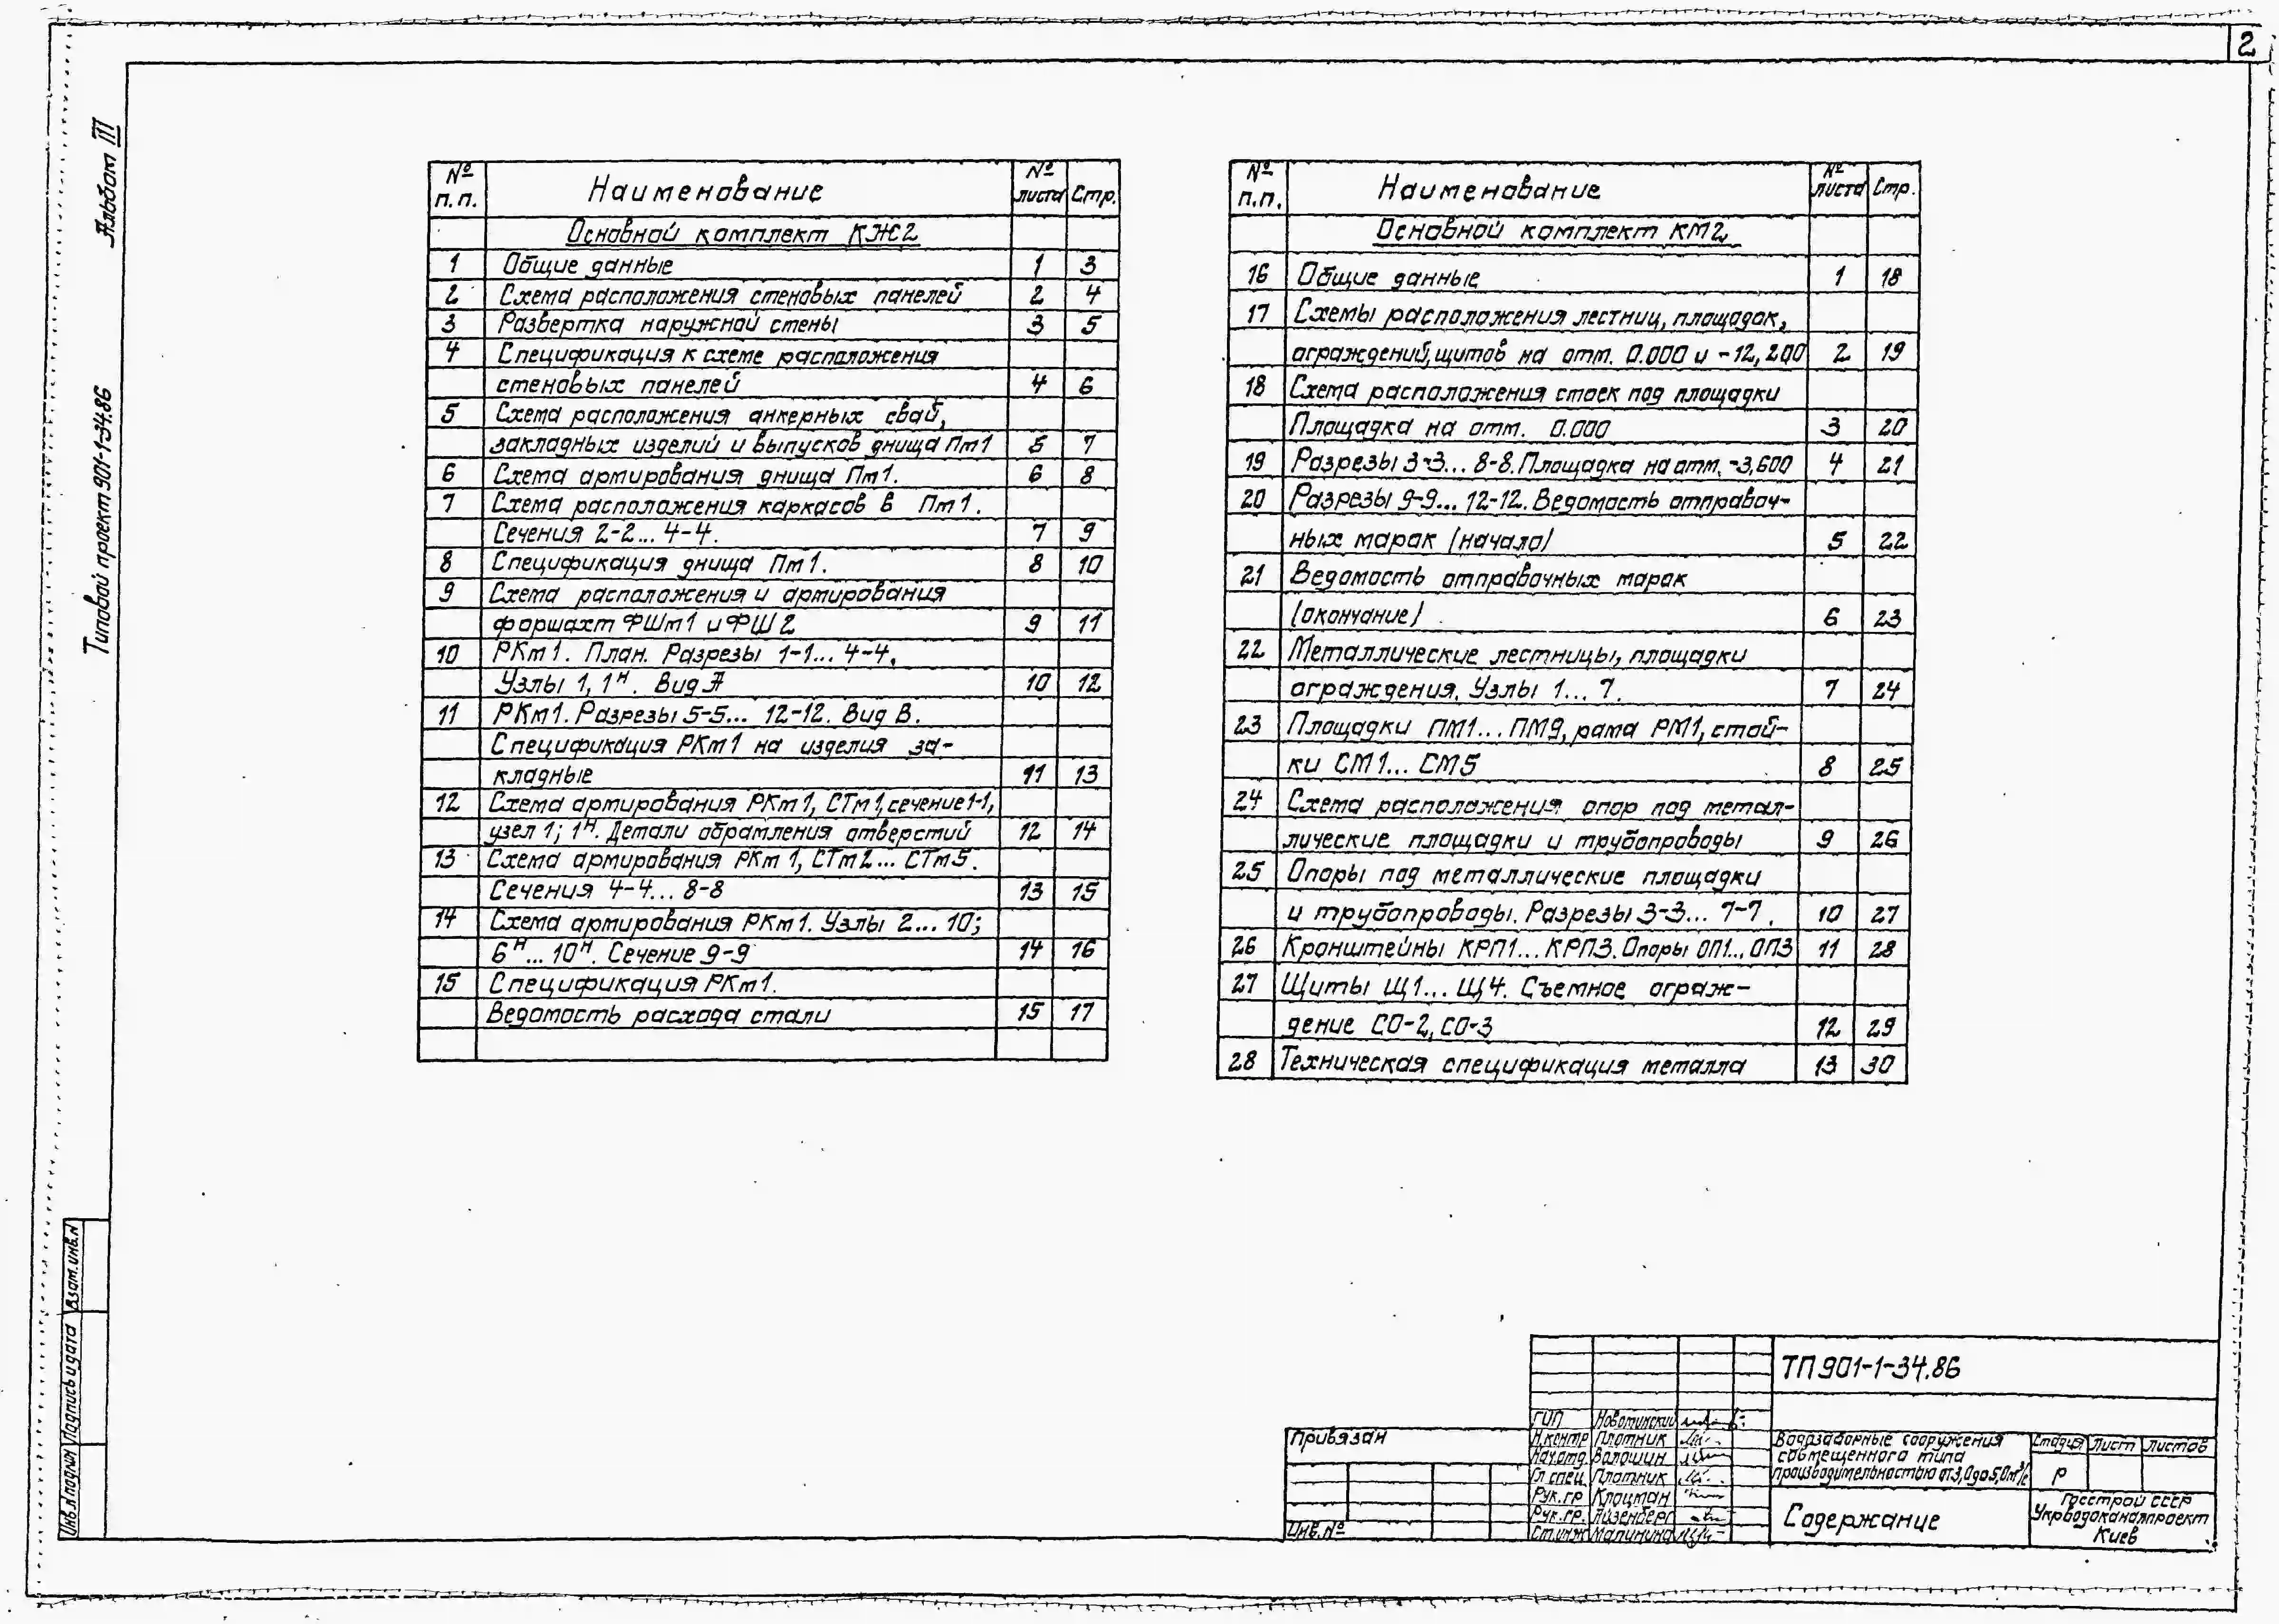 2
Альбом III
Типовой проект 901-1-34.86
№ п.п. Наименование № листа Стр.
Основной комплект КЖ2
1 Общие данные 1 3
2 Схема расположения стеновых панелей 2 4
3 Развертка наружной стены 3 5
4 Спецификация к схеме расположения
стеновых панелей 4 6
5 Схема расположения анкерных свай,
закладных изделий и выпусков днища Пм1 5 7
6 Схема армирования днища Пм1. 6 8
7 Схема расположения каркасов в Пм1.
Сечения 2-2... 4-4. 7 9
8 Спецификация днища Пм1. 8 10
9 Схема расположения и армирования
форшахт ФШм1 и ФШ2 9 11
10 РКм1. План. Разрезы 1-1... 4-4,
Узлы 1, 1н. Вид А 10 12
11 РКм1. Разрезы 5-5... 12-12. Вид В.
Спецификация РКм1 на изделия за-
кладные 11 13
12 Схема армирования РКм1, СТм1, сечение 1-1,
узел 1; 1н. Детали обрамления отверстий 12 14
13 Схема армирования РКм1, СТм2... СТм5.
Сечения 4-4... 8-8 13 15
14 Схема армирования РКм1. Узлы 2... 10;
6н... 10н. Сечение 9-9 14 16
15 Спецификация РКм1.
Ведомость расхода стали 15 17
№ п.п. Наименование № листа Стр.
Основной комплект КМ2
16 Общие данные 1 18
17 Схемы расположения лестниц, площадок,
ограждений, щитов на отм. 0.000 и -12,200 2 19
18 Схема расположения стоек под площадки
Площадка на отм. 0.000 3 20
19 Разрезы 3-3... 8-8. Площадка на отм. -3,600 4 21
20 Разрезы 9-9... 12-12. Ведомость отправоч-
ных марок (начало) 5 22
21 Ведомость отправочных марок
(окончание) 6 23
22 Металлические лестницы, площадки
ограждения. Узлы 1... 7. 7 24
23 Площадки ПМ1... ПМ9, рама РМ1, стой-
ки СМ1... СМ5 8 25
24 Схема расположения опор под метал-
лические площадки и трубопроводы 9 26
25 Опоры под металлические площадки
и трубопроводы. Разрезы 3-3... 7-7. 10 27
26 Кронштейны КРП1... КРП3. Опоры ОП1... ОП3 11 28
27 Щиты Щ1... Щ4. Съемное ограж-
дение СО-2, СО-3 12 29
28 Техническая спецификация металла 13 30
Взам. инв. N
Подпись и дата
Инв. N подлин
Привязан
Инв. №
ТП 901-1-34.86
ГИП Новотинский
Н.контр Плотник
Нач.отд. Волошин
Гл.спец. Плотник
Рук.гр Клоцман
Рук.гр. Айзенберг
Ст.инж Малинина
Водозаборные сооружения
совмещенного типа
производительностью от 3,0 до 5,0 м³/с
Стадия Лист Листов
Р
Содержание
Госстрой СССР
Укрводоканалпроект
Киев